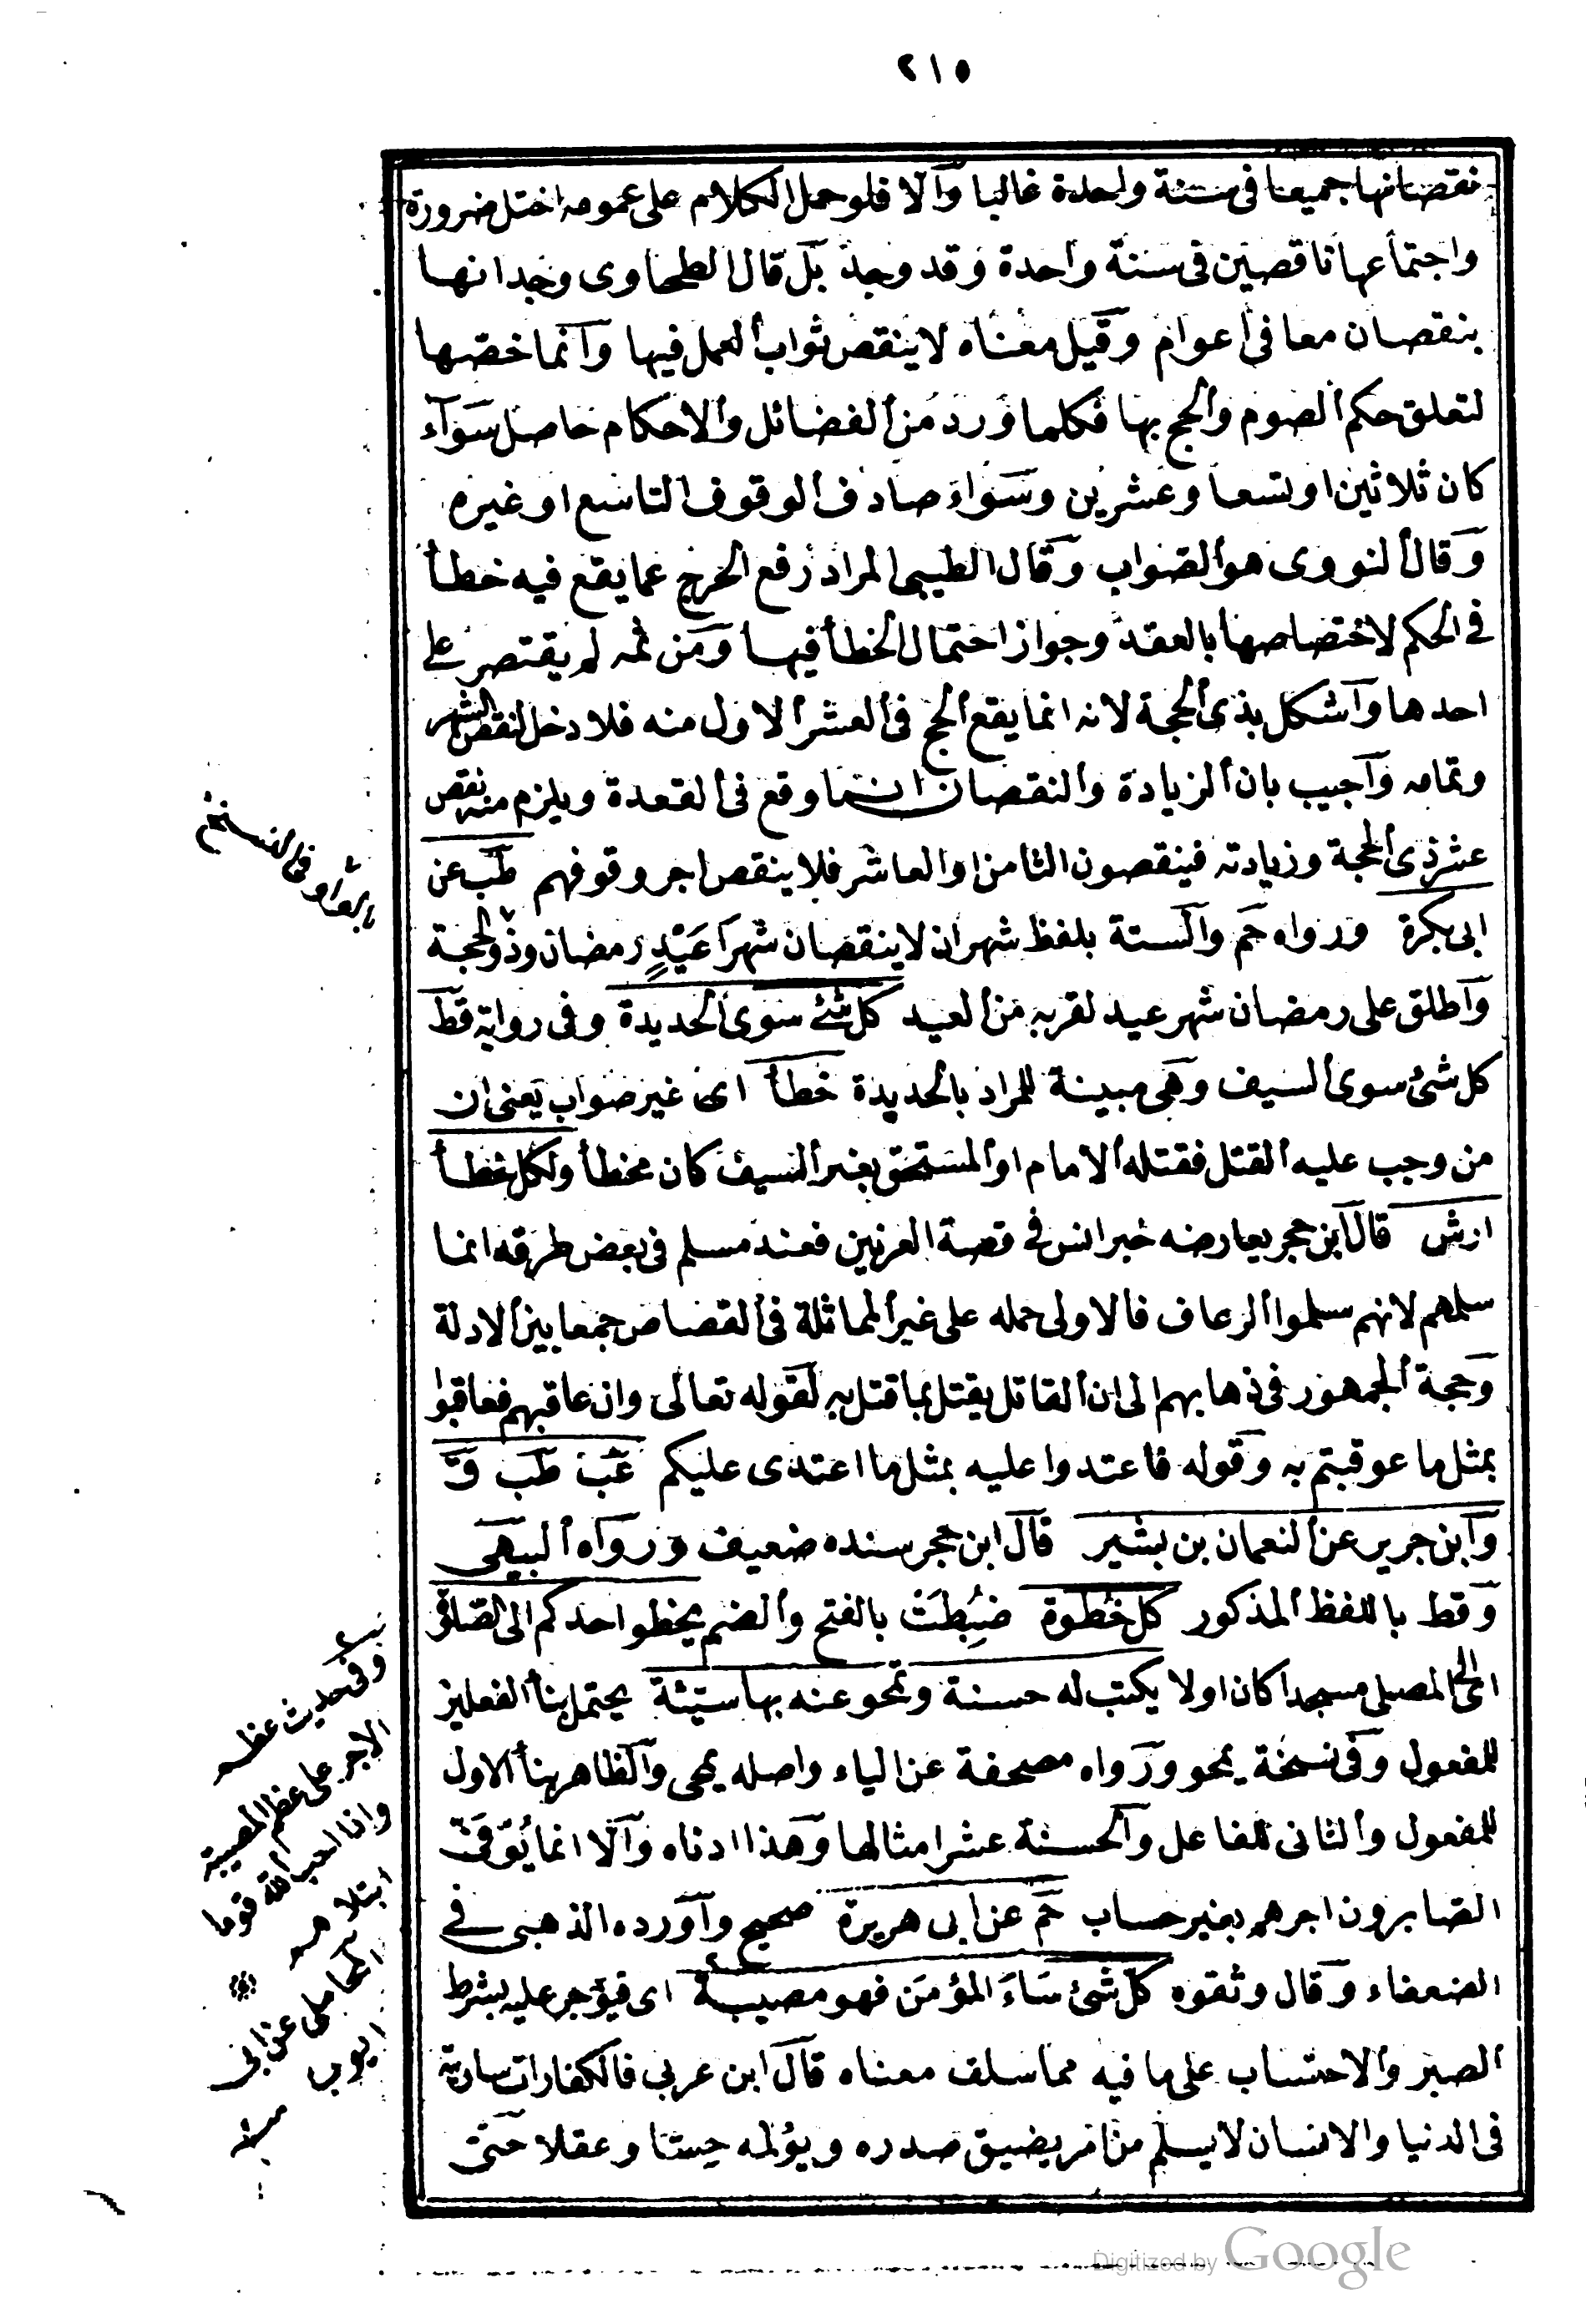 ٢١٥
نقصانها جميعا فى سنة واحدة غالبا والا فلو حمل الكلام على عمومه اختل ضرورة
واجتماعها ناقصين فى سنة واحدة وقد وجد بل قال الطحاوى وجدانهما
ينقصان معا فى اعوام وقيل معناه لا ينقص ثواب العمل فيها وانما خصها
لتعلق حكم الصوم والحج بها فكلما ورد من الفضائل والاحكام حاصل سوآء
كان ثلاثين او تسعا وعشرين وسواء صادف الوقوف التاسع او غيره
وقال النووى هو الصواب وقال الطيبى المراد رفع الحرج عما يقع فيه خطأ
فى الحكم لاختصاصها بالعقد وجواز احتمال الخطأ فيها ومن ثمه لم يقتصر على
احدها واشكل بذى الحجة لانه انما يقع الحج فى العشر الاول منه فلا دخل لنقص الشهر
وتمامه واجيب بان الزيادة والنقصان انما وقع فى القعدة ويلزم منه نقص
عشر ذى الحجة وزيادته فينقصون الثامن او العاشر فلا ينقص اجر وقوفهم طب عن
ابى بكرة ورواه حم والستة بلفظ شهران لا ينقصان شهرا عَيْدٍ رمضان وذو الحجة
واطلق على رمضان شهر عيد لقربه من العيد كل شئ سوى الحديدة وفى رواية قط
كل شئ سوى السيف وهى مبينة للمراد بالحديدة خطأ اى غير صواب يعنى ان
من وجب عليه القتل فقتله الامام او المستحق بغير السيف كان مخطأ ولكل خطأ
ارش قال ابن حجر يعارضه خبر انس فى قصة العرنيين فعند مسلم فى بعض طرقه انما
سملهم لانهم سملوا الرعاف فالاولى حمله على غير المماثلة فى القصاص جمعا بين الادلة
وحجة الجمهور فى ذهابهم الى ان القاتل يقتل بما قتل به لقوله تعالى وان عاقبهم فعاقبوا
بمثل ما عوقبتم به وقوله فاعتدوا عليه بمثل ما اعتدى عليكم عب طب ق
وابن جرير عن النعمان بن بشير قال ابن حجر سنده ضعيف ورواه البيهى
وقط باللفظ المذكور كل خطوة ضبطت بالفتح والضم يخطو احدكم الى الصلوة
اى الى المصلى مسجدا كان او لا يكتب له حسنة وتمحو عنه بها سيئة يحتمل بنأ الفعلين
للمفعول وفى نسخة يمحو ورواه مصحفة عن الياء واصله يمحى والظاهر بنأ الاول
للمفعول والثانى للفاعل والحسنة عشر امثالها وهذا ادناه والا انما يوفى
الصابرون اجرهم بغير حساب حم عن ابى هريرة صحيح واورده الذهبى فى
الضعفاء وقال وثقوه كل شئ سَاءَ المؤمن فهو مصيبة اى فيؤجر عليه بشرط
الصبر والاحتساب على ما فيه مما سلف معناه قال ابن عربى فالكفارات سارية
فى الدنيا والانسان لا يسلم من امر يضيق صدره ويؤلمه حسا وعقلا حتى
وفى حديث عظم
الاجر على عظم المصيبة
وانا احب الله قوما
ابتلاهم
المحاملى عن ابى
ايوب
Digitized by Google